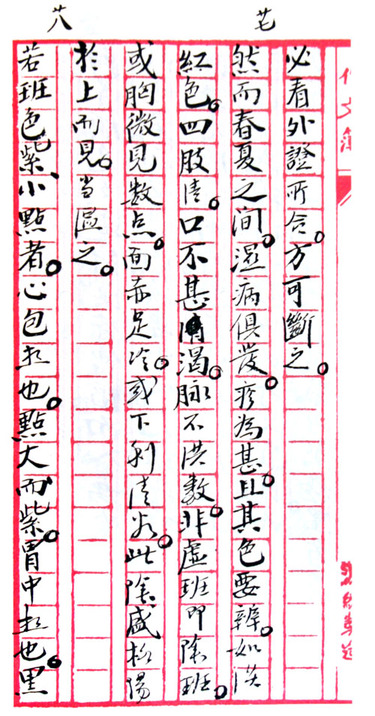 廿七
必看外證所合。方可斷之。
然而春夏之间。濕病俱發。疹為甚。且其色要辨。如淡
紅色。四肢清。口不甚渴。脉不洪數。非虚班即陰班。
或胸微見数点。面赤足冷。或下利清谷。此陰盛格陽
於上而見。当温之。
廿八
若班色紫、小點者。心包热也。點大而紫。胃中热也。黑